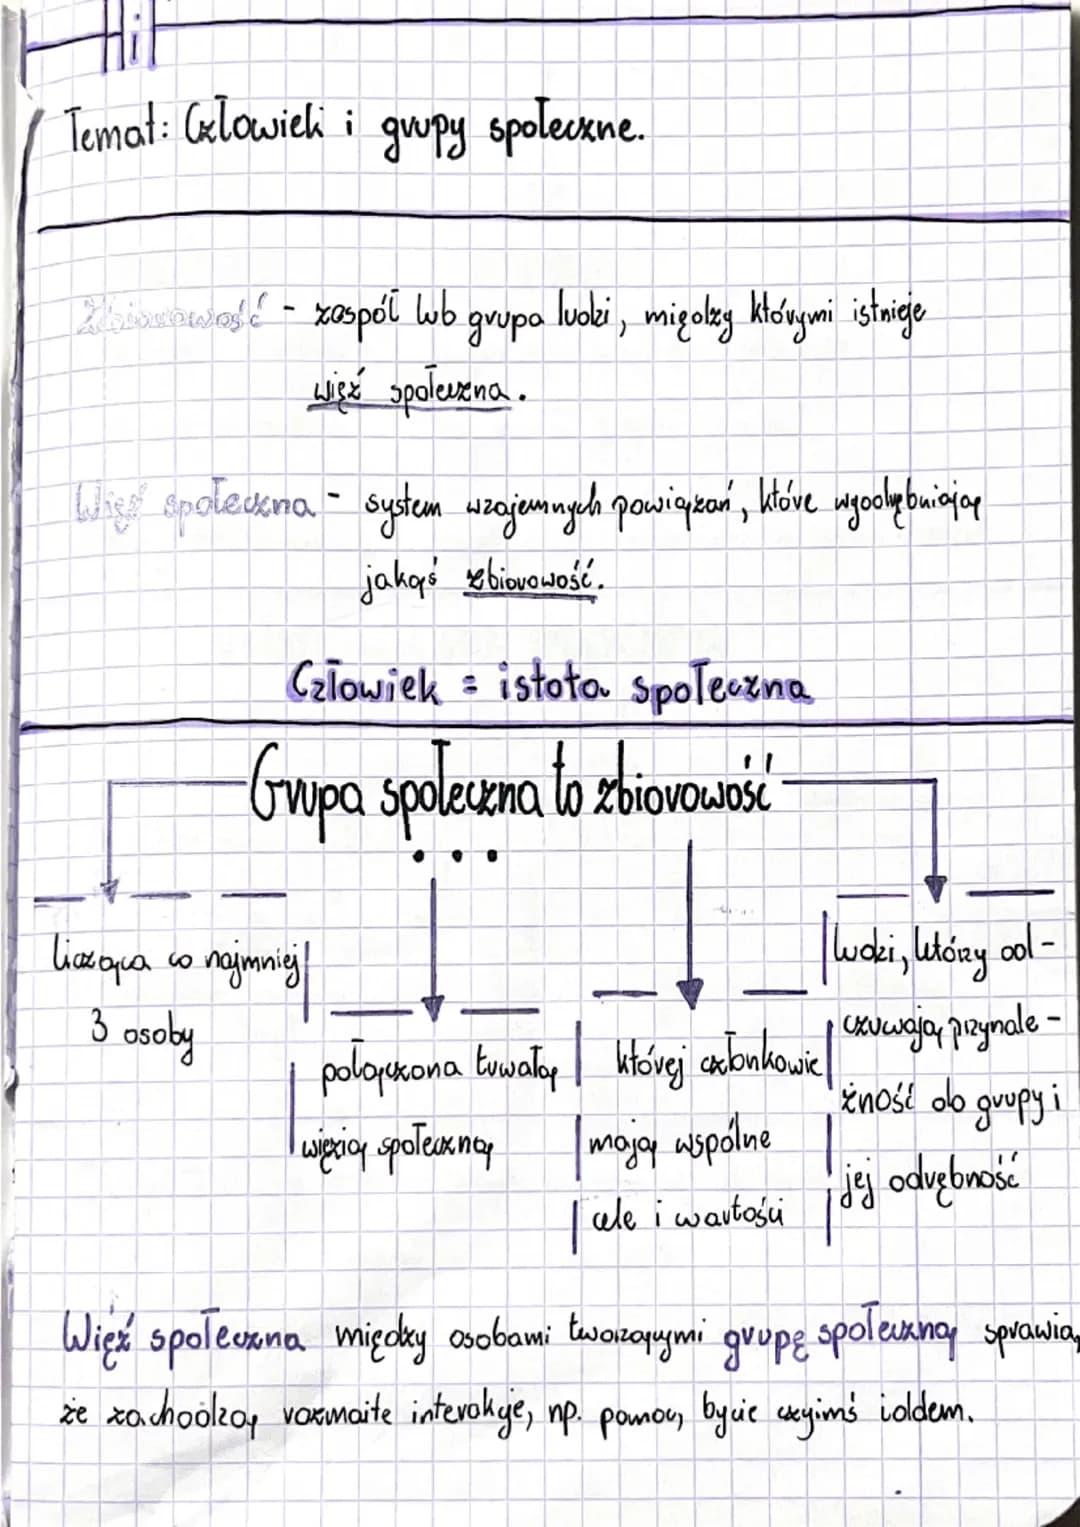 HiT
Temat: Człowiek i grupy społeczne.
Zbiorowość - zespół lub grupa ludzi, między którymi istnieje
więź społeczna.
Więź społeczna - system wzajemnych powiązań, które wyodrębniają
jakąś zbiorowość.
Człowiek = istota społeczna
Grupa społeczna to zbiorowość
...
licząca co najmniej
3 osoby
połączona trwałą
więzią społeczną
której członkowie
mają wspólne
cele i wartości
ludzi, którzy od-
czuwają przynale-
żność do grupy i
jej odrębność
Więź społeczna między osobami tworzącymi grupę społeczną sprawia,
że zachodzą rozmaite interakcje, np. pomoc, bycie czyimś idolem.